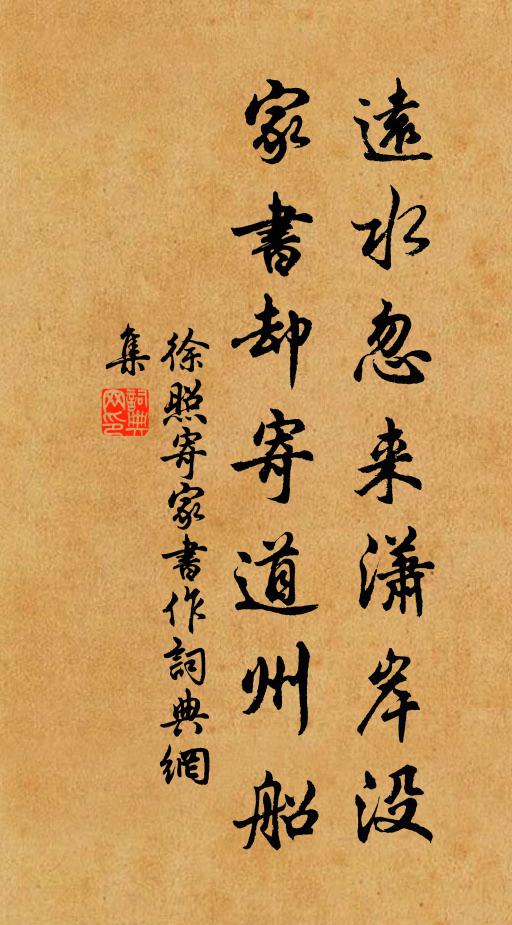 遠水忽来瀟岸没
家書却寄道州船
徐照寄家書作詞典網
集
詞典
网印